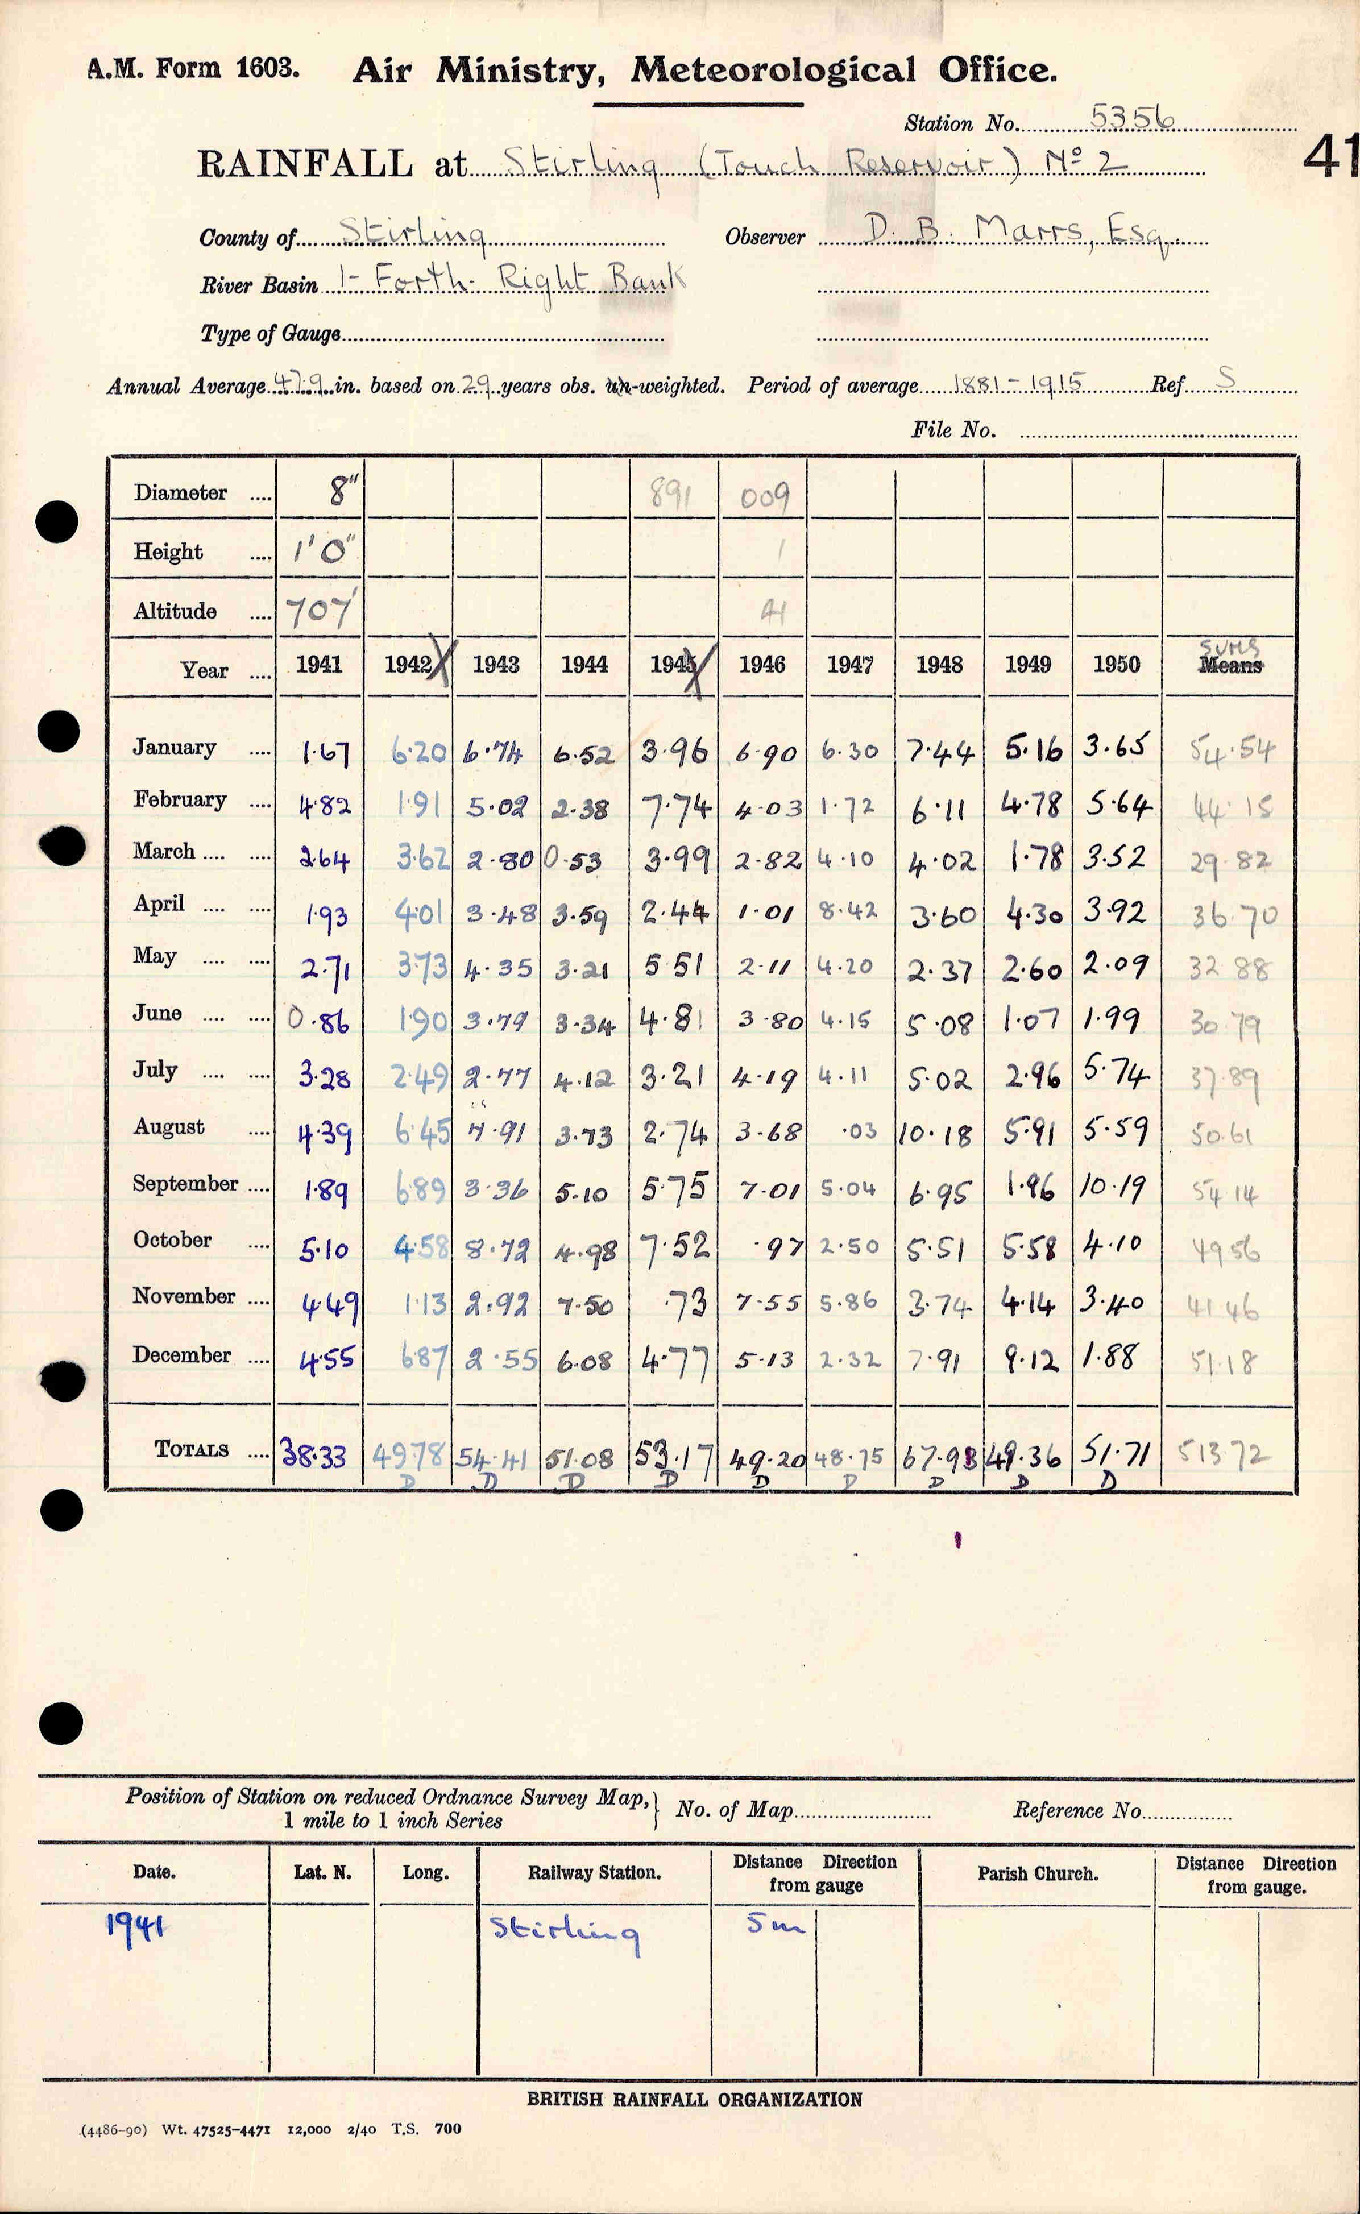 A.M. Form 1603. Air Ministry, Meteorological Office.
Station No. 5356
RAINFALL at Stirling (Touch Reservoir) Nº 2
41
County of Stirling Observer D. B. Marrs, Esq.
River Basin 1- Forth- Right Bank
Type of Gauge
Annual Average 47.9 in. based on 29 years obs. un-weighted. Period of average 1881-1915 Ref. S
File No.
Diameter .... 8" 891 009
Height .... 1'0" 1
Altitude .... 707' A1
SUMS
Year .... 1941 1942 X 1943 1944 1945 X 1946 1947 1948 1949 1950 Means
January .... 1.67 6.20 6.74 6.52 3.96 6.90 6.30 7.44 5.16 3.65 54.54
February .... 4.82 1.91 5.02 2.38 7.74 4.03 1.72 6.11 4.78 5.64 44.15
March .... .... 2.64 3.62 2.80 0.53 3.99 2.82 4.10 4.02 1.78 3.52 29.82
April .... .... 1.93 4.01 3.48 3.59 2.44 1.01 8.42 3.60 4.30 3.92 36.70
May .... .... 2.71 3.73 4.35 3.21 5.51 2.11 4.20 2.37 2.60 2.09 32.88
June .... .... 0.86 1.90 3.79 3.34 4.81 3.80 4.15 5.08 1.07 1.99 30.79
July .... .... 3.28 2.49 2.77 4.12 3.21 4.19 4.11 5.02 2.96 5.74 37.89
August .... 4.39 6.45 7.91 3.73 2.74 3.68 .03 10.18 5.91 5.59 50.61
September .... 1.89 6.89 3.36 5.10 5.75 7.01 5.04 6.95 1.96 10.19 54.14
October .... 5.10 4.58 8.72 4.98 7.52 .97 2.50 5.51 5.58 4.10 49.56
November .... 4.49 1.13 2.92 7.50 .73 7.55 5.86 3.74 4.14 3.40 41.46
December .... 4.55 6.87 2.55 6.08 4.77 5.13 2.32 7.91 9.12 1.88 51.18
TOTALS .... 38.33 49.78 54.41 51.08 53.17 49.20 48.75 67.93 49.36 51.71 513.72
D D D D D D D D D
Position of Station on reduced Ordnance Survey Map, 1 mile to 1 inch Series } No. of Map Reference No.
Date. Lat. N. Long. Railway Station. Distance Direction from gauge Parish Church. Distance Direction from gauge.
1941 Stirling 5m
BRITISH RAINFALL ORGANIZATION
(4486-90) Wt. 47525-4471 12,000 2/40 T.S. 700